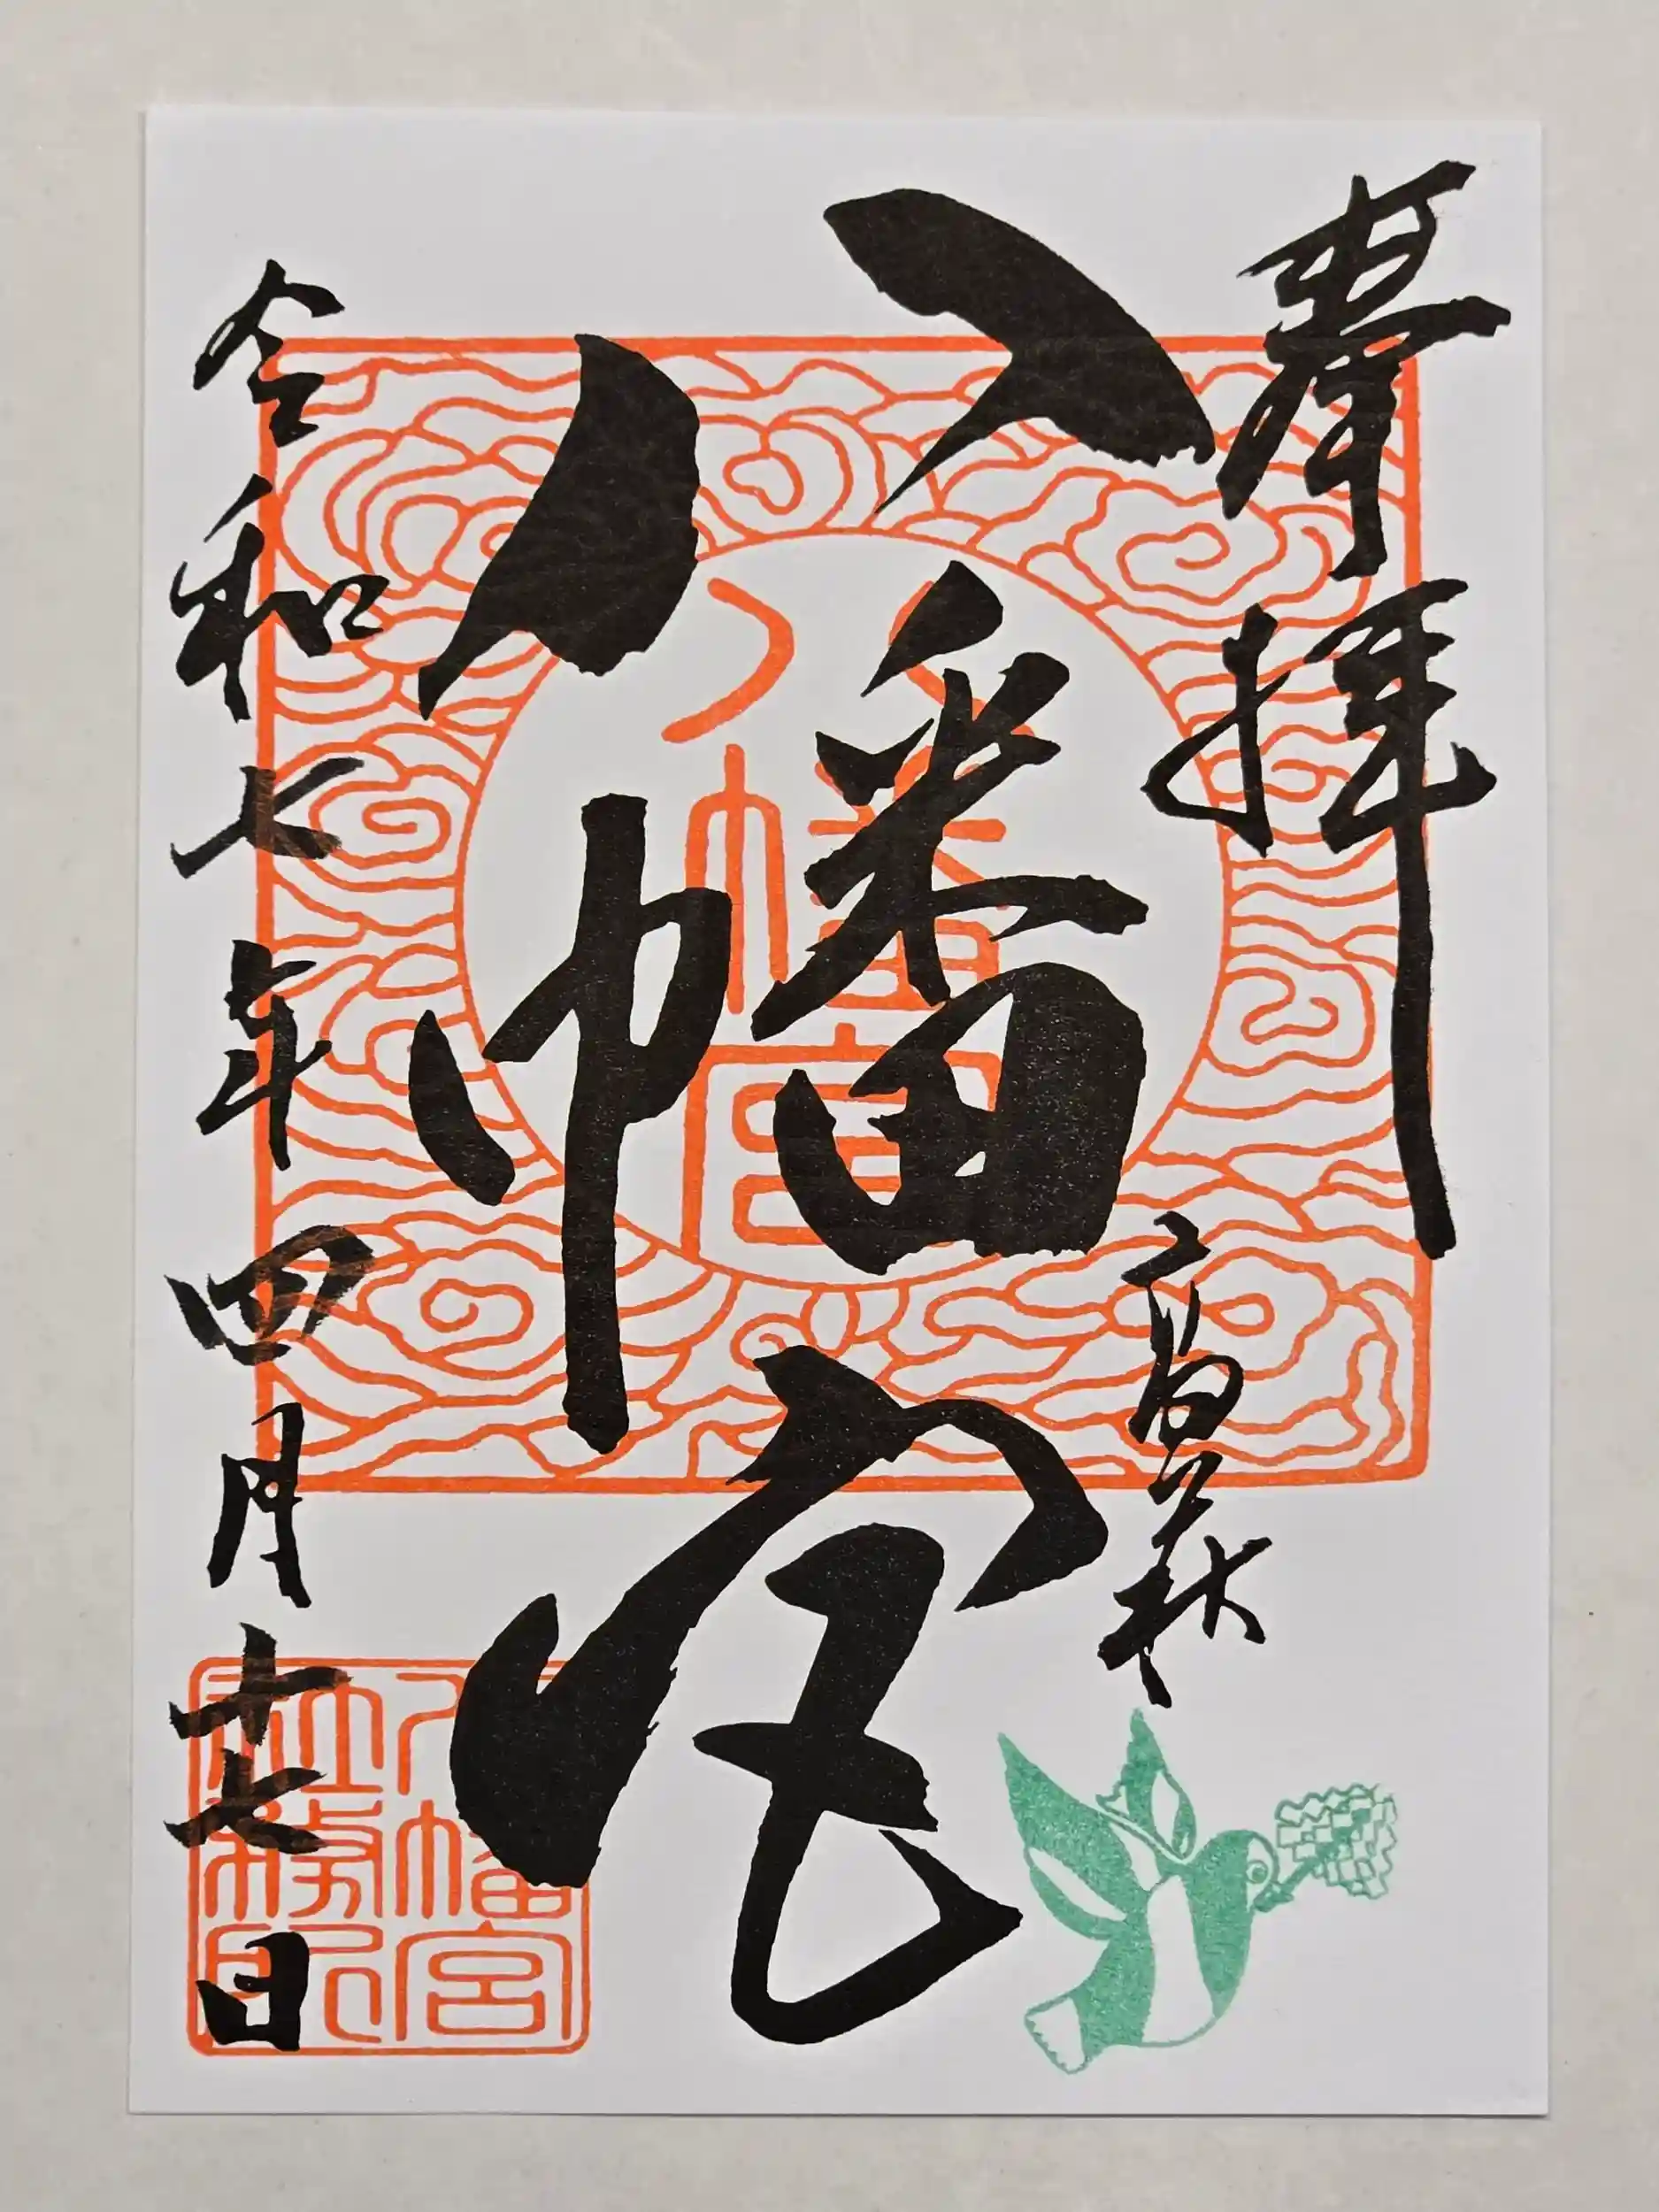 奉拝
高萩
八幡宮
八幡宮
令和七年四月十七日
八幡宮
社務印